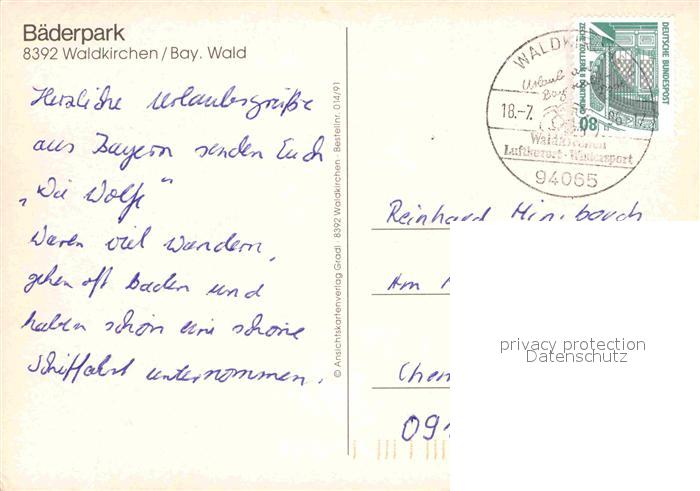 Bäderpark
8392 Waldkirchen / Bay. Wald
Herzliche Urlaubsgrüße
aus Bayern senden Euch
„Die Wölfe“
Waren viel Wandern,
gehen oft baden und
haben schon eine schöne
Schiffahrt unternommen.
© Ansichtskartenverlag Gradl · 8392 Waldkirchen · Bestellnr. 014/91
WALDK
Urlaub
18.-7.
Waldkirchen
Luftkurort - Wintersport
94065
DEUTSCHE BUNDESPOST
ZECHE ZOLLERN II DORTMUND
80
Reinhard
Am
Chem
091
privacy protection
Datenschutz